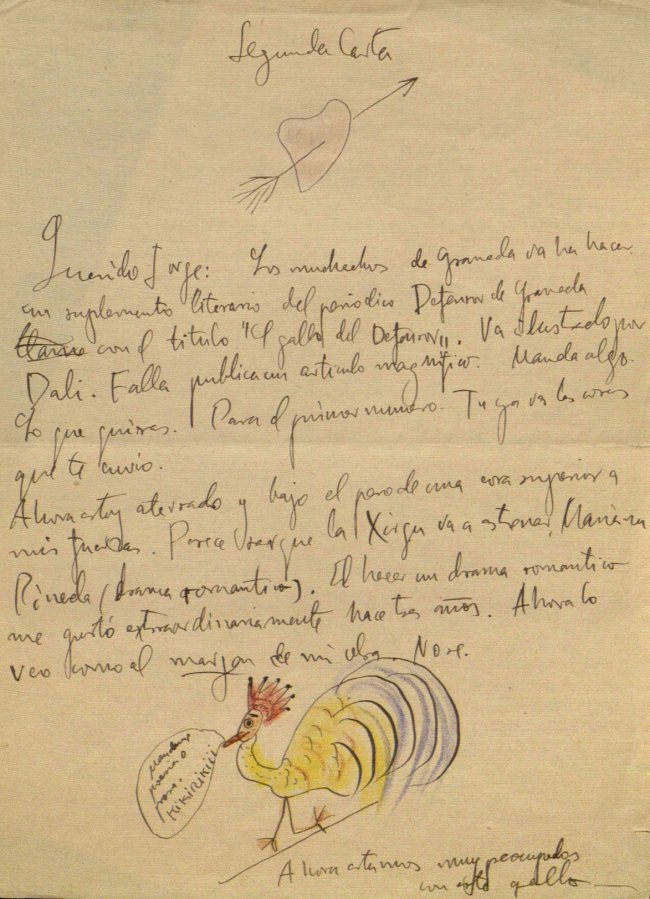 Segunda Carta
Querido Jorge: Los muchachos de Granada va ha hacer
un suplemento literario del periodico Defensor de Granada
con el titulo "El gallo del Defensor". Va ilustrado por
Dali. Falla publica un articulo magnifico. Manda algo.
Lo que quieras. Para el primer numero. Tu ya ves las cosas
que te envio.
Ahora estoy aterrado y bajo el peso de una cosa superior a
mis fuerzas. Parece ser que la Xirgu va a estrenar Mariana
Pineda (drama romantico). El hacer un drama romantico
me gustó extraordinariamente hace tres años. Ahora lo
veo como al margen de mi obra. No se.
poesia o
prosa.
KiKiRiKiii
Ahora estamos muy preocupados
con este gallo